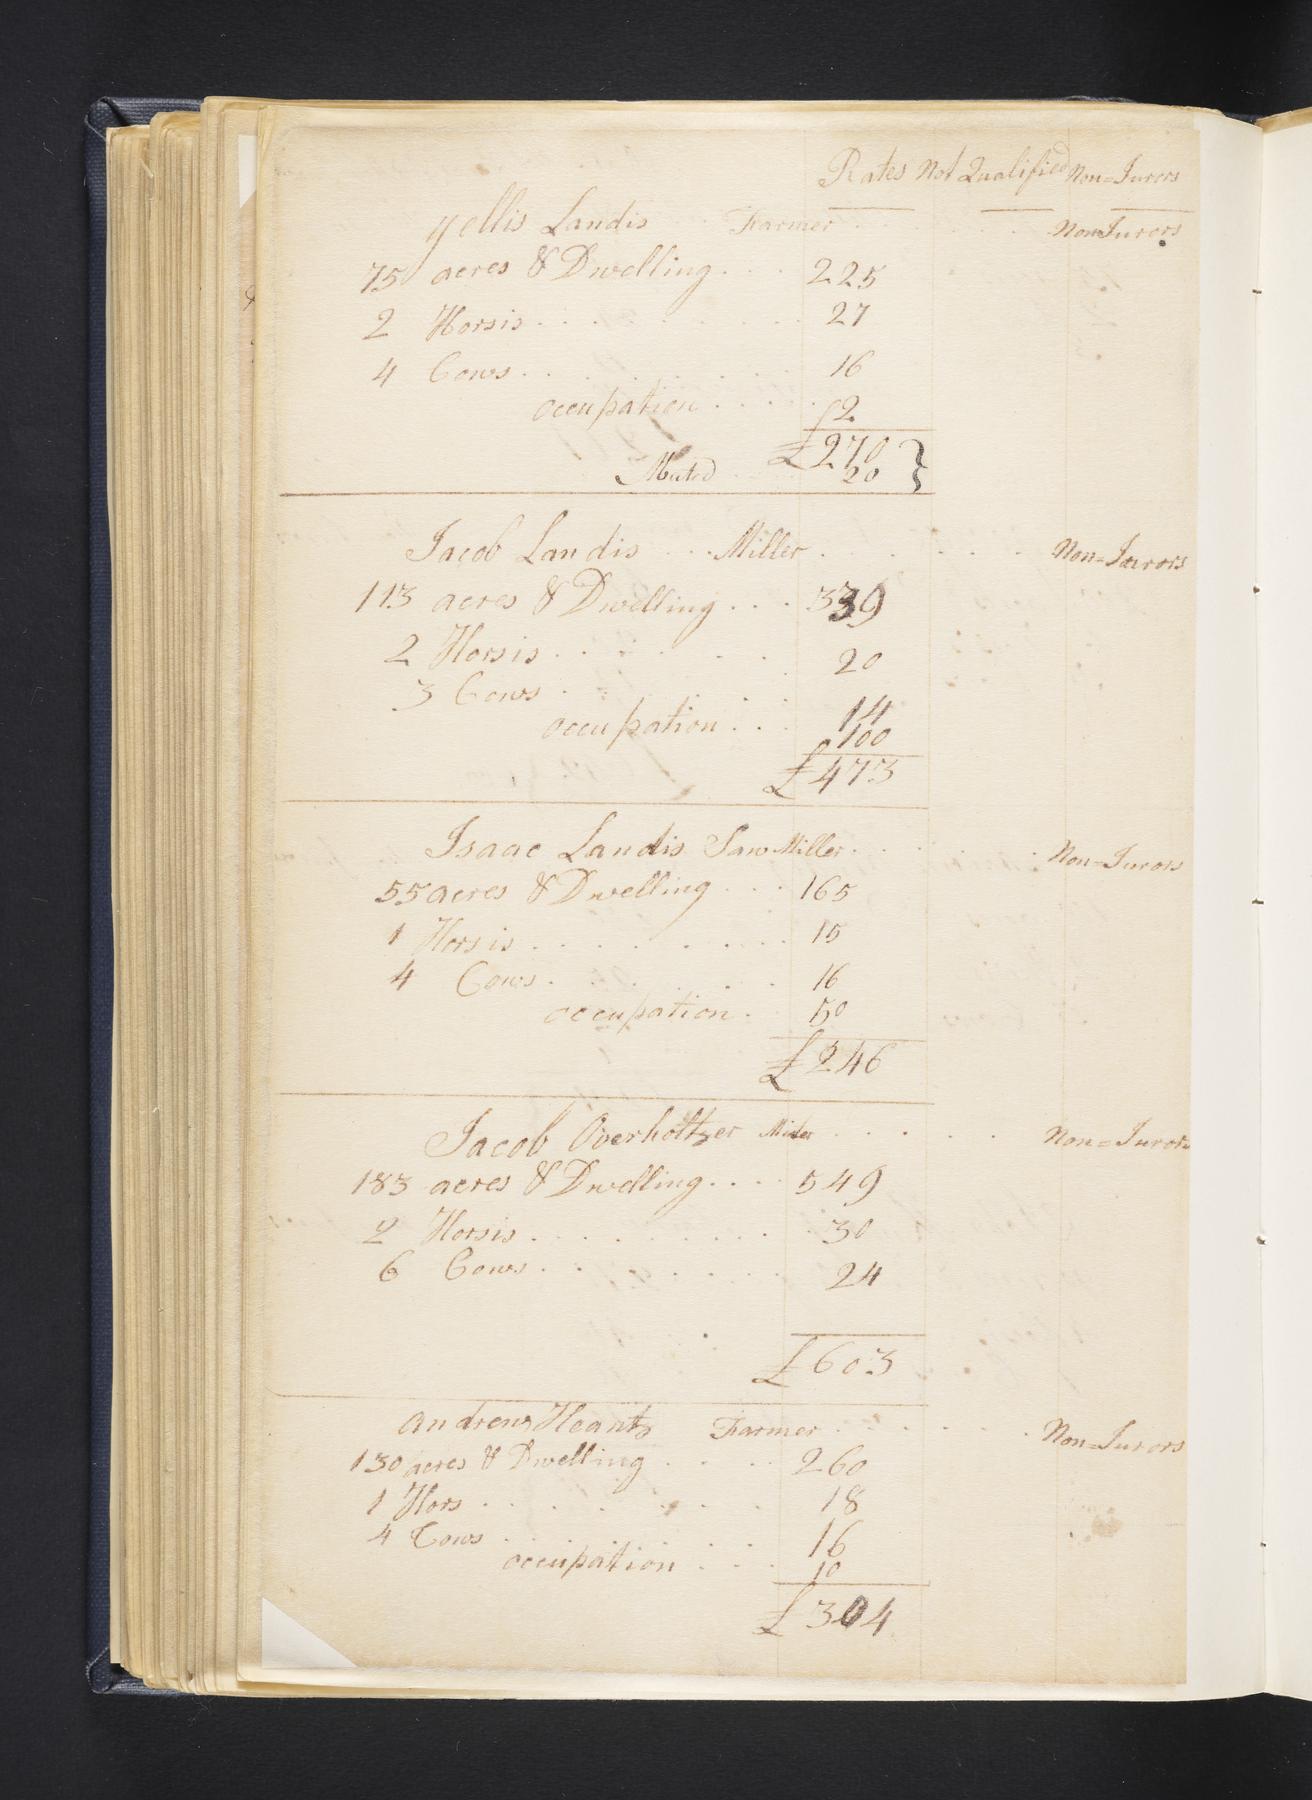 Rates Not Qualified Non=Jurors
Yellis Landis Farmer Non=Jurors
75 acres & Dwelling 225
2 Horsis 27
4 Cows 16
occupation 2
£270
20
Jacob Landis Miller Non=Jurors
113 acres & Dwelling 339
2 Horsis 20
3 Cows
occupation 14
100
£473
Isaac Landis Saw Miller Non=Jurors
55 acres & Dwelling 165
1 Horsis 15
4 Cows 16
occupation 50
£246
Jacob Overholtzer Non=Jurors
183 acres & Dwelling 549
2 Horsis 30
6 Cows 24
£603
Andrew Heantz Farmer Non=Jurors
130 acres & Dwelling 260
1 Hors 18
4 Cows 16
occupation 10
£304